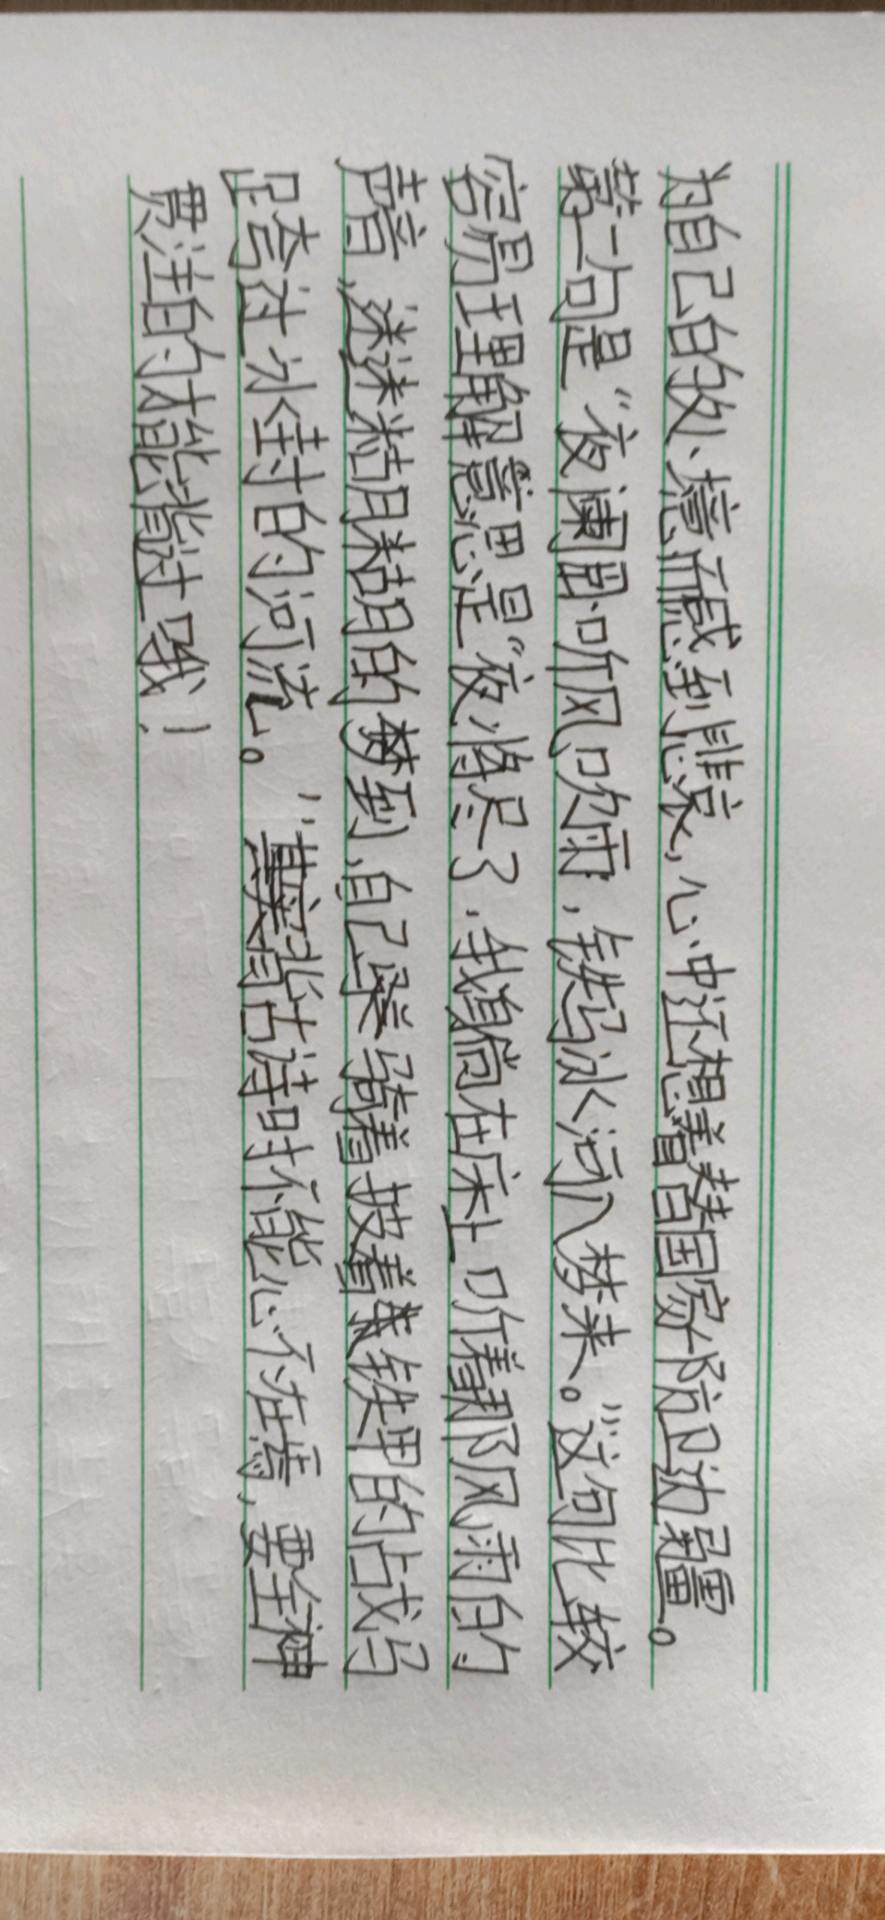 为自己的处境而感到悲哀，心中还想着替国家防卫边疆。
第二句是“夜阑卧听风吹雨，铁马冰河入梦来。”这句比较
容易理解意思是“夜将尽了，我身躺在床上听着那风雨的
声音，迷迷糊糊的梦到，自己骑着披着铁甲的战马
跨过冰封的河流。”其实背古诗时不能心不在焉，要全神
贯注的才能背过哦！